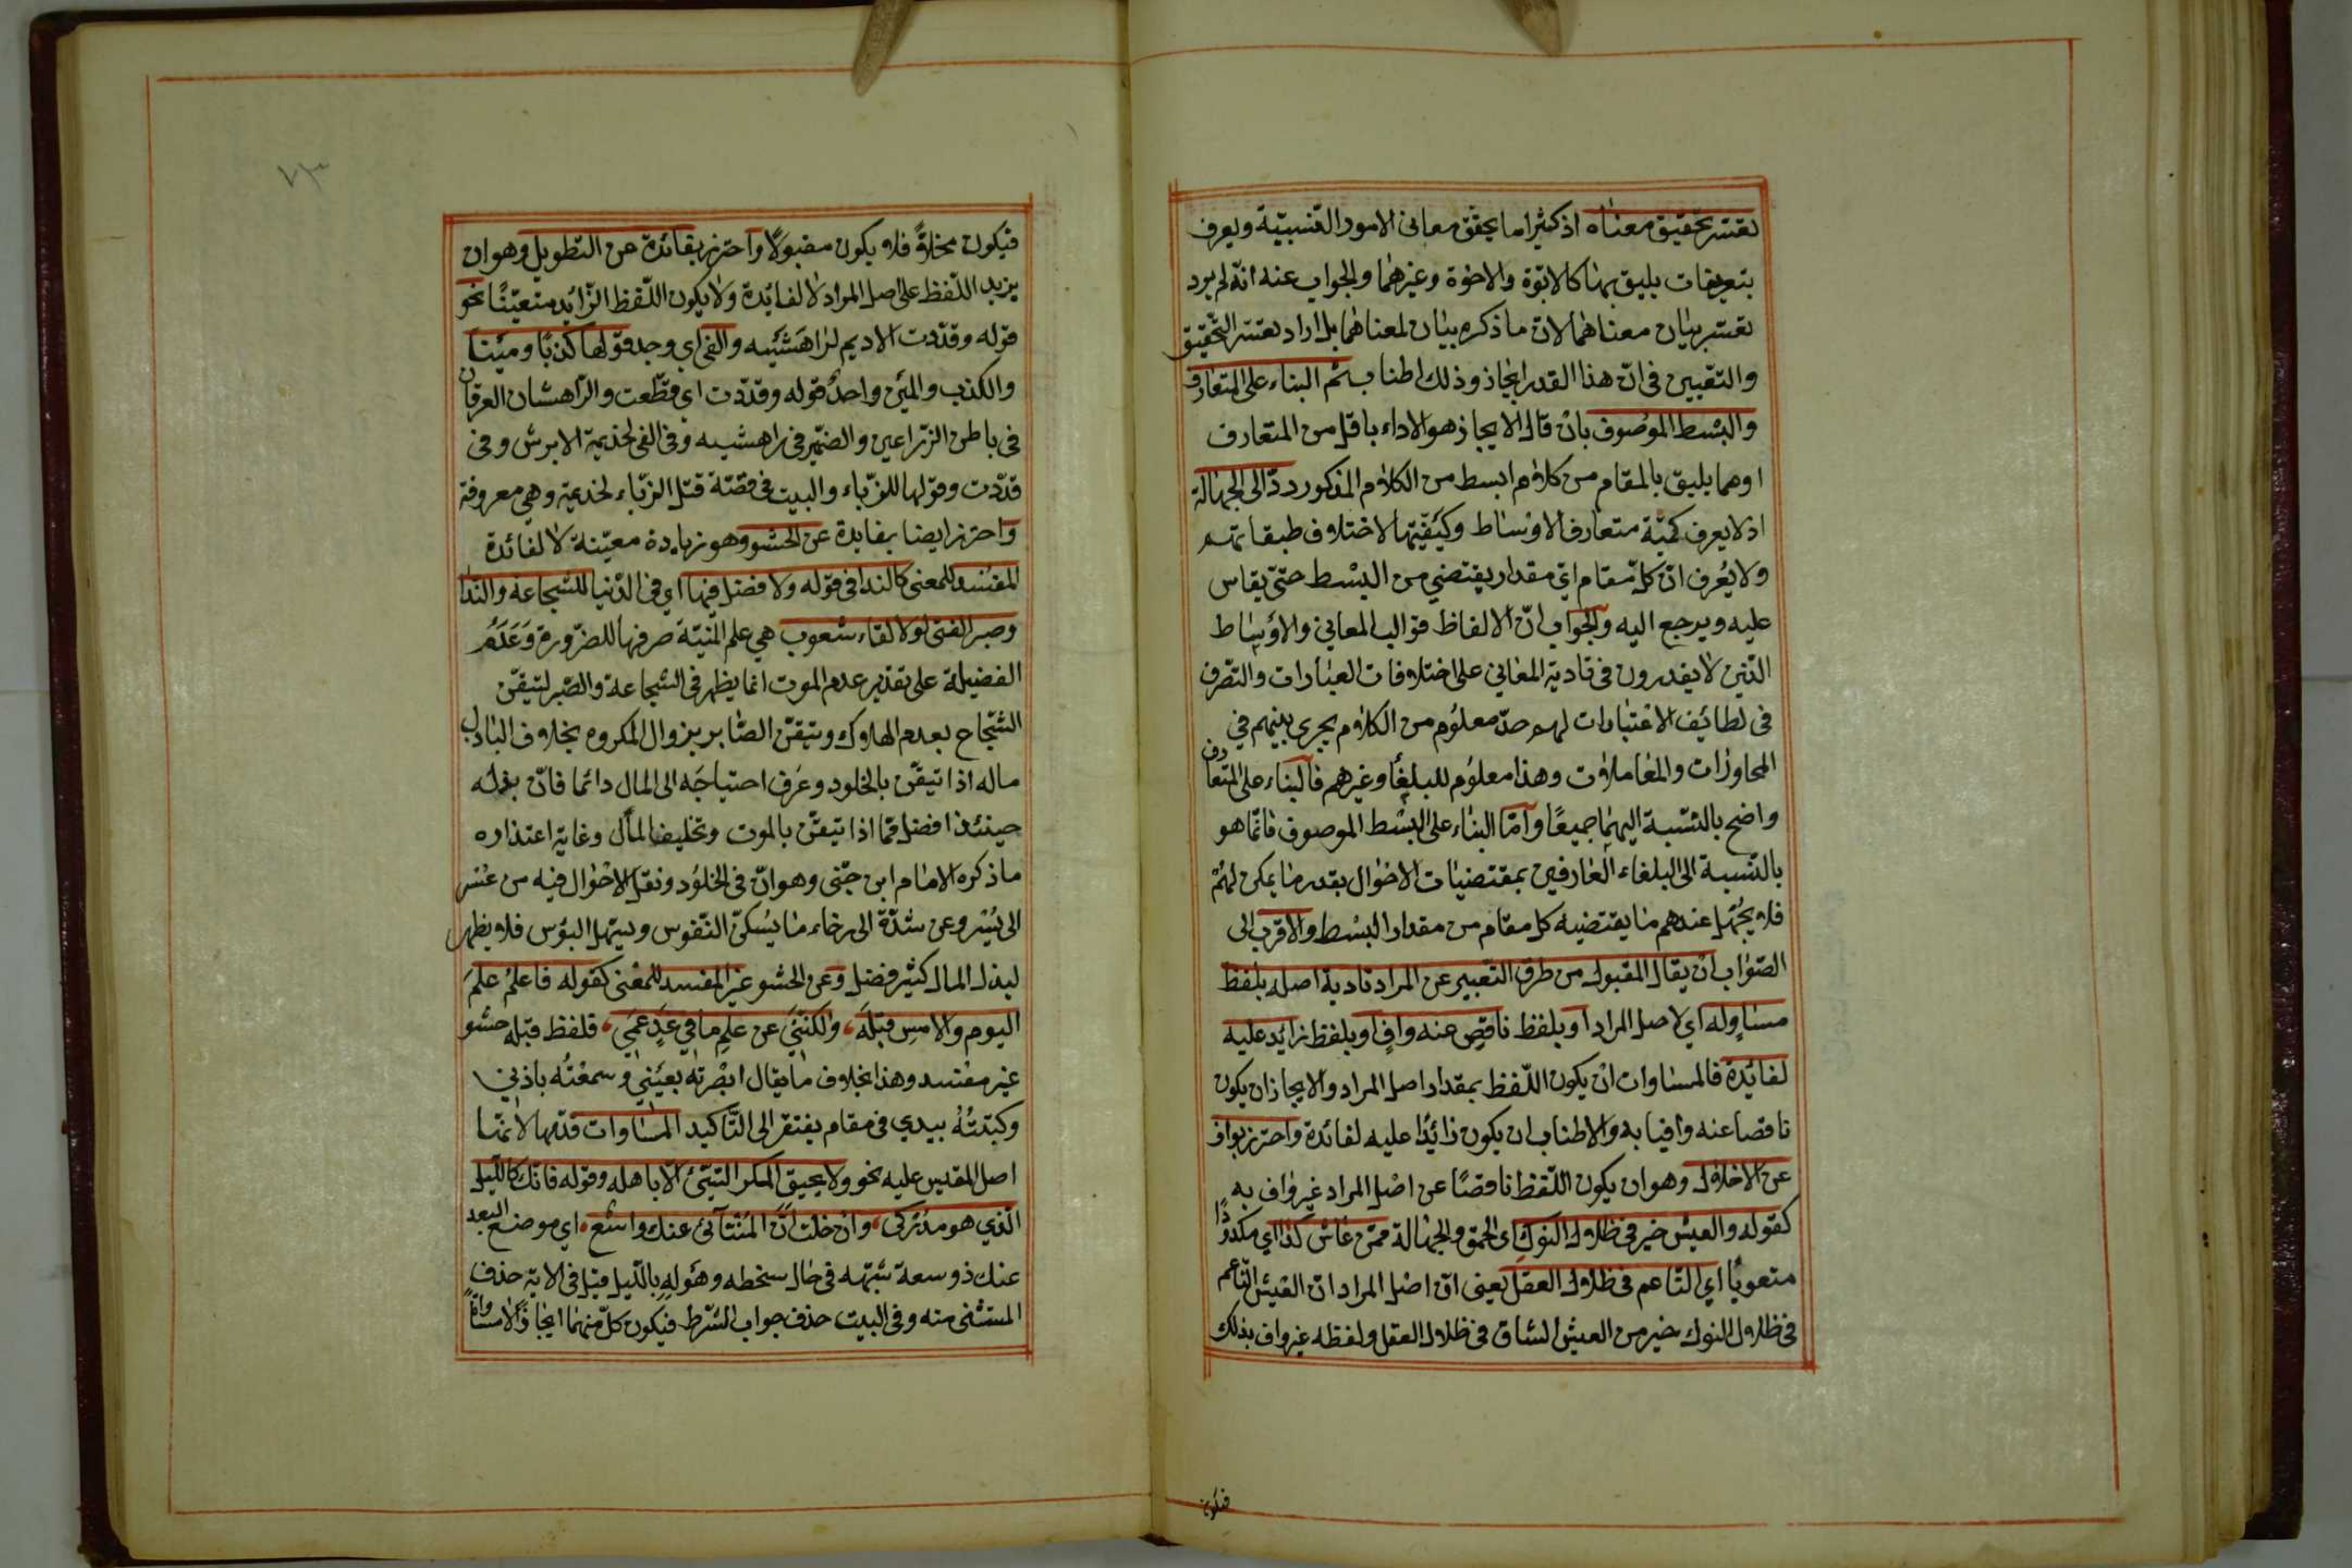 تعسر تحقيق معناه اذ كثيرا ما يحقق معانى الامور النسبيّة ويعرف
بتعريفات يليق بهما كالابوّة والاخوّة وغيرهما والجواب عنه انّه لم يرد
تعسّر بيان معناهما لان ما ذكره بيان لمعناهما بل اراد تعسّر التّحقيق
والتعيين فى انّ هذا القدر ايجاز وذلك اطناب ثم البناء على المتعارف
والبسط الموصوف بان قال الايجاز هو الاداء باقل من المتعارف
او هما يليق بالمقام من كلام ابسط من الكلام المذكور ردّ الى الجهالة
اذ لا يعرف كميّة متعارف الاوساط وكيفيّتها لاختلاف طبقاتهم
ولا يُعرف انّ كلّ مقام ايّ مقدار يقتضي من البسط حتّى يقاس
عليه ويرجع اليه والجواب انّ الالفاظ قوالب المعاني والاوساط
الّذين لا يقدرون فى تادية المعاني على اختلافات العبارات والتصرف
فى لطائف الاعتبارات لهم حدّ معلوم من الكلام يجرى بينهم في
المحاورات والمعاملات وهذا معلوم للبلغاء وغيرهم فالبناء على المتعارف
واضح بالنّسبة اليهما جميعًا وامّا البناء على البسط الموصوف فانّما هو
بالنّسبة الى البلغاء العارفين بمقتضيات الاحوال بقدر ما يمكن لهم
فلا يجهل عندهم ما يقتضيه كل مقام من مقدار البسط والاقرب الى
الصّواب ان يقال المقبول من طرق التّعبير عن المراد تادية اصله بلفظ
مساوله اي لاصل المراد او بلفظ ناقص عنه وافٍ او بلفظ زائد عليه
لفائدة فالمساوات ان يكون اللّفظ بمقدار اصل المراد والايجاز ان يكون
ناقصا عنه وافيا به والاطناب ان يكون زائدًا عليه لفائدة واحترز بواف
عن الاخلال وهو ان يكون اللّفظ ناقصًا عن اصل المراد غير واف به
كقوله والعيش خير فى ظلال النوك اى الحمق والجهالة ممّن عاش كدّا اي مكدودًا
متعوبًا اي النّاعم فى ظلال العقل يعنى انّ اصل المراد انّ العيش النّاعم
فى ظلال النوك خير من العيش الشاق فى ظلال العقل ولفظه غير واف بذلك
فيكون
٧٣
فيكون مخلاةً فلا يكون مقبولًا واحترز بفائدة عن التّطويل وهو ان
يزيد اللّفظ على اصل المراد لا لفائدة ولا يكون اللّفظ الزّائد متعيّنًا نحو
قوله وقدّدت الاديم لراهشيه والفى اي وجد قولها كذبا ومينا
والكذب والمين واحد قوله وقدّدت اي قطّعت والرّاهشان العرقان
فى باطن الذّراعين والضّمير فى راهشيه وفى الفى لجذيمة الابرش وفى
قدّدت وقولها للزّباء والبيت فى قصّة قتل الزّباء لجذيمة وهي معروفة
واحترز ايضا بفايدة عن الحشو وهو زيادة معيّنة لا لفائدة
المفسد للمعنى كالندا فى قوله ولا فضل فيها اي فى الدّنيا للشّجاعة والنّدا
وصبر الفتى لولا لقاء شعوب هي علم المنيّة صرفها للضّرورة وعدم
الفضيلة على تقدير عدم الموت انما يظهر فى الشّجاعة والصّبر لتيقّن
الشّجاع بعدم الهلاك وتيقّن الصّابر بزوال المكروه بخلاف الباذل
ماله اذا تيقّن بالخلود وعرف احتياجه الى المال دائما فانّ بذله
حينئذ افضل ممّا اذا تيقّن بالموت وتخليف المال وغاية اعتذاره
ما ذكره الامام ابن جنّى وهو انّ فى الخلود ونقل الاحوال فيه من عسر
الى يسر وعن شدّة الى رخاء ما يسكن النّفوس ويسهل البؤس فلا يظهر
لبذل المال كثير فضل وعن الحشو غير المفسد للمعنى كقوله فاعلم علم
اليوم والامس قبله، ولكنّني عن علم ما في غدٍ عمي، فلفظ قبله حشو
غير مفسد وهذا بخلاف ما يقال ابصرته بعيني وسمعته باذني
وكتبته بيدي فى مقام يفتقر الى التّاكيد المساوات قدّمها لانّها
اصل المقيس عليه نحو ولا يحيق المكر السّيّئ الّا باهله وقوله فانّك كاللّيل
الّذي هو مدركى، وان خلت انّ المنتأى عنك واسع، اي موضع البعد
عنك ذو سعة شبّهه فى حال سخطه وهوله باللّيل قيل فى الاية حذف
المستثنى منه وفى البيت حذف جواب الشّرط فيكون كلّ منهما ايجازًا لا مساواةً